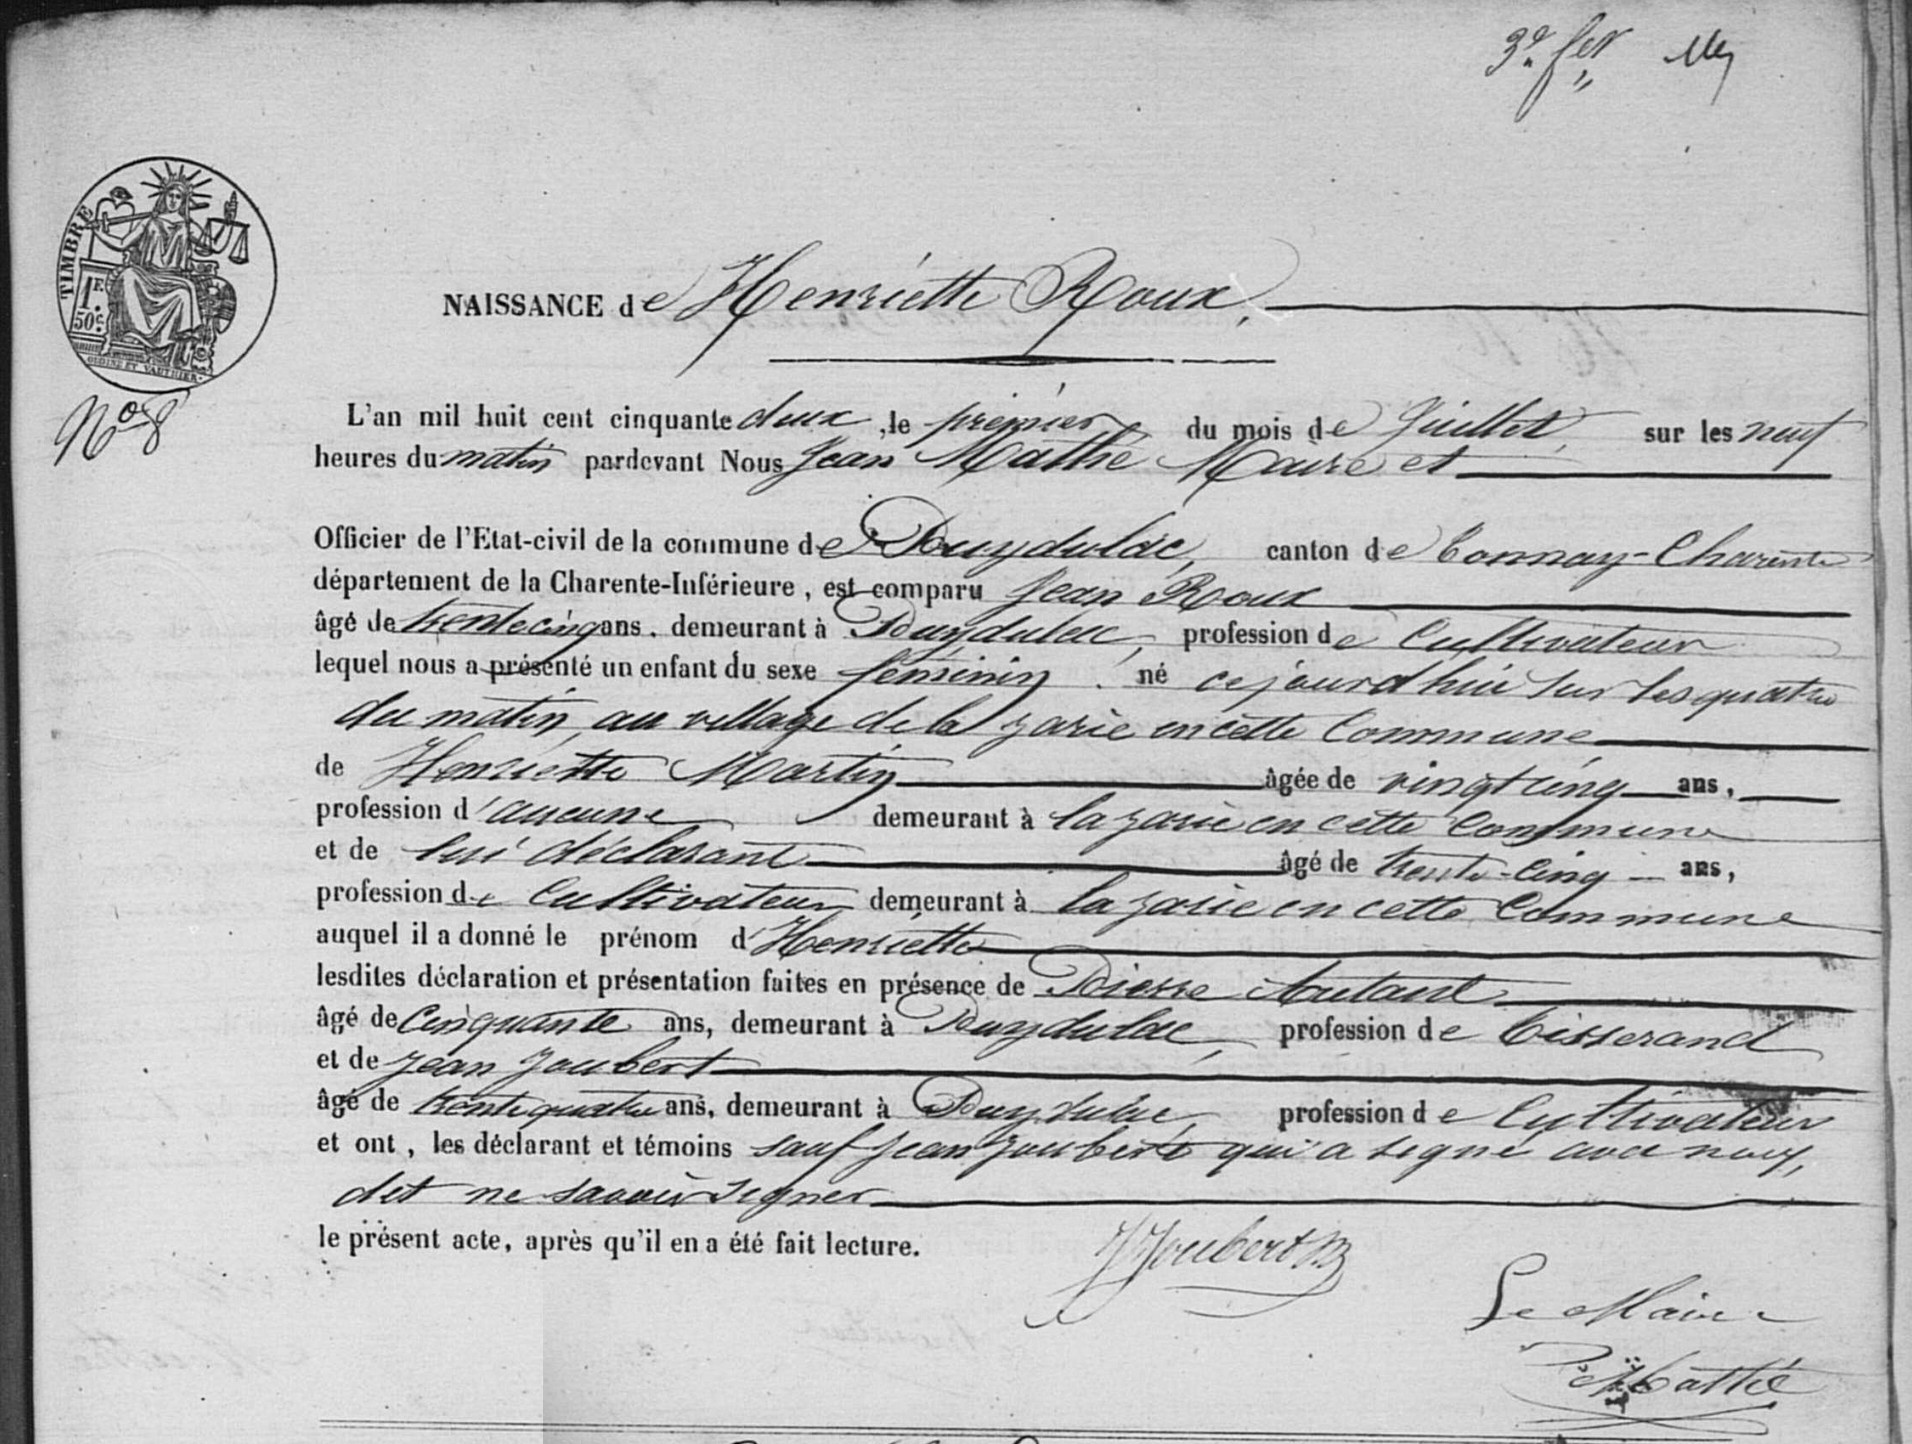 3e
TIMBRE
1F.
50c.
NAISSANCE de Henriette Roux.
No 8
L'an mil huit cent cinquante deux, le premier du mois de Juillet, sur les neuf
heures du matin pardevant Nous Jean Mathé Maire et
Officier de l'Etat-civil de la commune de Puydulac, canton de Tonnay-Charente
département de la Charente-Inférieure, est comparu Jean Roux
âgé de trente cinq ans. demeurant à Puydulac, profession de Cultivateur
lequel nous a présenté un enfant du sexe féminin. né cejourd'hui sur les quatre
du matin, au village de la zarie en cette Commune
de Henriette Martin âgée de vingt cinq ans,
profession d'aucune demeurant à la zarie en cette Commune
et de lui déclarant âgé de trente-cinq ans,
profession de Cultivateur demeurant à la zarie en cette Commune
auquel il a donné le prénom d'Henriette
lesdites déclaration et présentation faites en présence de Pierre Autant
âgé de Cinquante ans, demeurant à Puydulac, profession de Tisserand
et de Jean Joubert
âgé de trente quatre ans, demeurant à Puydulac, profession de Cultivateur
et ont, les déclarant et témoins sauf Jean Joubert qui a signé avec nous,
dit ne savoir signer
le présent acte, après qu'il en a été fait lecture.
Joubert
Le Maire
Mathé